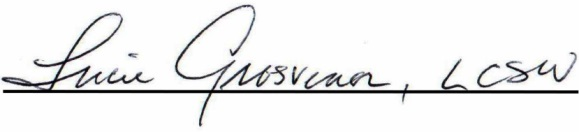 Lucie Grosvenor, LCSW